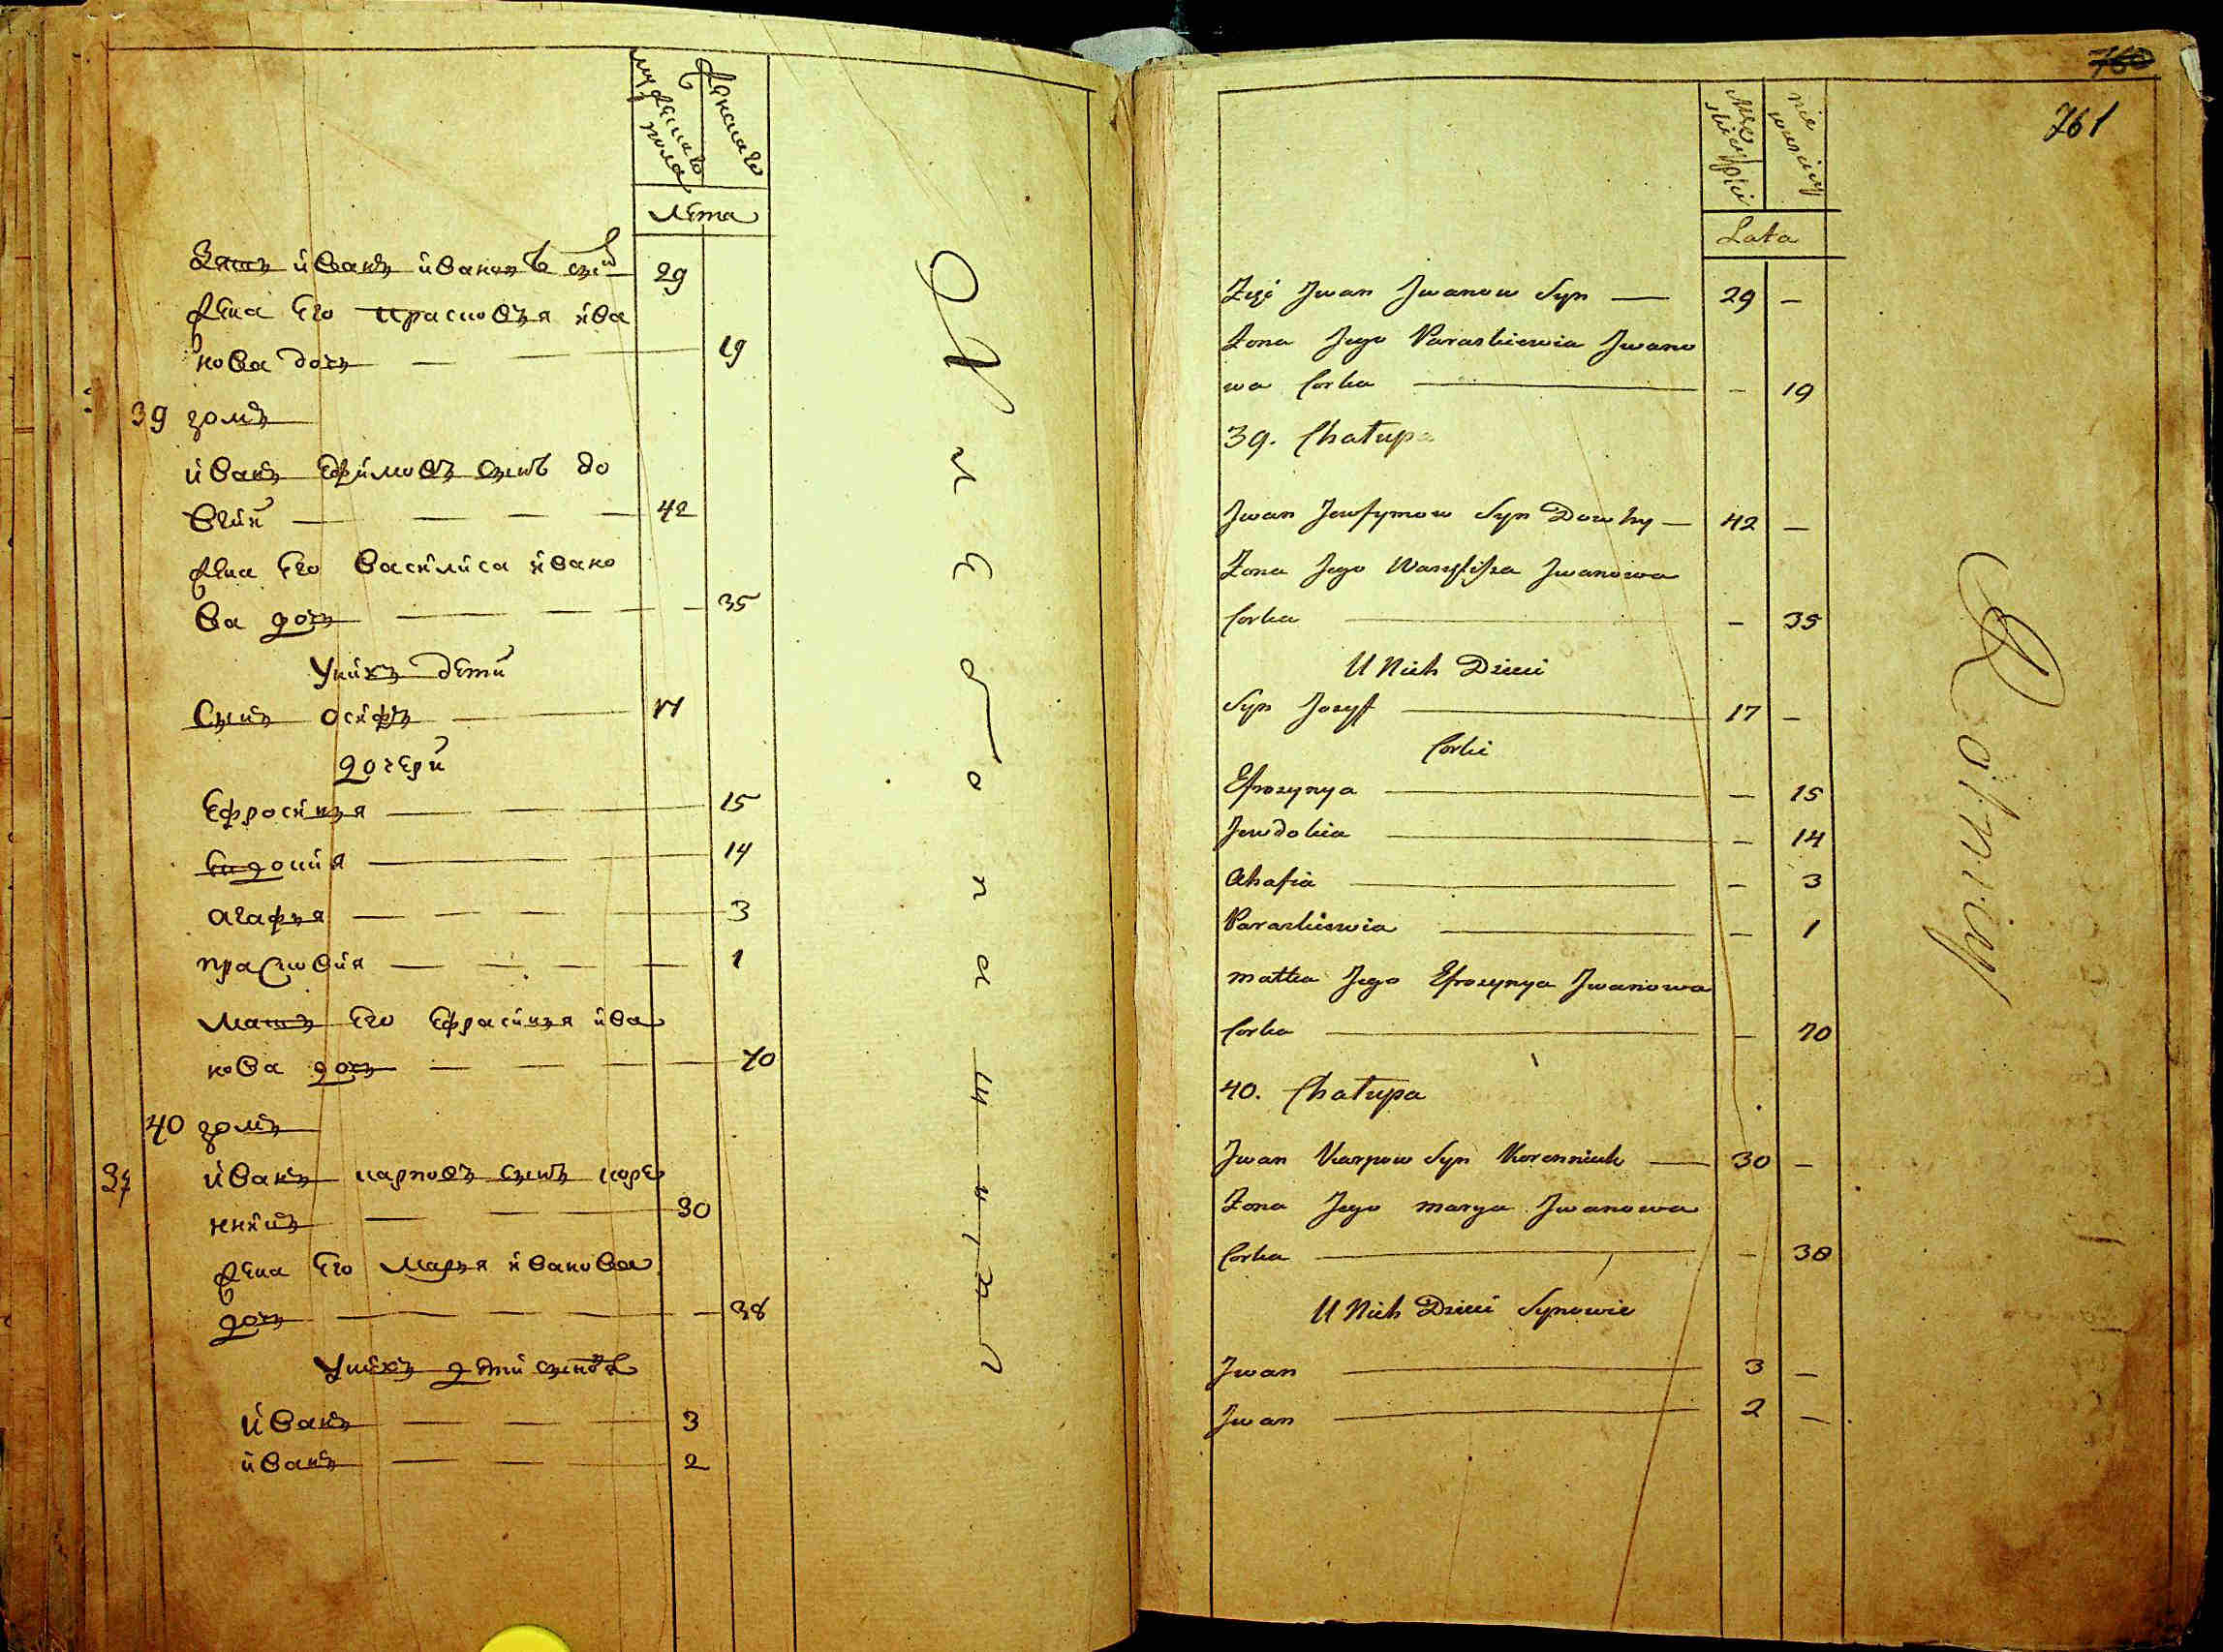 мужескаго
пола
женскаго
лета
Зять иванъ ивановъ сынъ 29
жена его прасковья ива
нова дочь 19
39 домъ
иванъ ефимовъ сынъ до
вгий 42
жена его василиса ивано
ва дочь 35
у нихъ дети
Сынъ осифъ 17
дочери
Ефросинья 15
Евдокия 14
агафья 3
прасковия 1
мать его ефрасинья ива
нова дочь 70
40 домъ
37 иванъ карповъ сынъ коре
нникъ 30
жена его марья иванова
дочь 38
у нихъ дети сыновья
иванъ 3
иванъ 2
760
761
Lata
Zięć Jwan Jwanow Syn — 29 —
Żona Jego Paraskiewia Jwano
wa Corka — 19
39. Chałupa
Jwan Jewfymow Syn Dowhy — 42 —
Żona Jego Wasylissa Jwanowa
Corka — 35
U Nich Dzieci
Syn Jozyff — 17 —
Corki
Efrozynya — 15
Jewdokia — 14
Ahafia — 3
Paraskiewia — 1
matka Jego Efrozynya Jwanowa
Corka — 70
40. Chałupa
Jwan Karpow Syn Korennick — 30 —
Żona Jego marya Jwanowa
Corka — 38
U Nich Dzieci Synowie
Jwan — 3 —
Jwan — 2 —